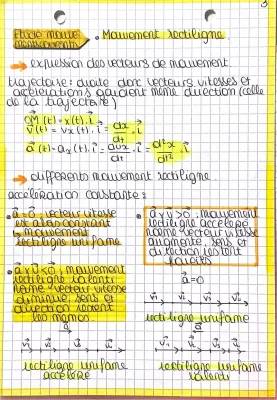 Etude mouvements • Mouvement rectiligne.
→ expression des vecteurs de mouvement.
trajectoire: droite donc vecteurs vitesses et
accélérations auront même direction (celle
de la trajectoire)
OM(t) = x(t).i
v(t) = vx(t).i = dx/dt .i
a(t) = ax(t).i = dvx/dt .i = d²x/dt² .i
→ différents mouvement rectiligne.
accélération constante:
• a = 0, vecteur vitesse
est alors constant
→ mouvement
rectiligne uniforme
• a x v > 0, mouvement
rectiligne accéléré
norme vecteur vitesse
augmente, sens et
direction
• a x v < 0, mouvement
rectiligne ralenti
norme vecteur vitesse
diminue, sens et
direction
les mêmes
a = 0
v1 v2 v3 v4
rectiligne uniforme
a
v1 v2 v3
rectiligne uniforme
accéléré
a
v1 v2 v3
rectiligne uniforme
ralenti